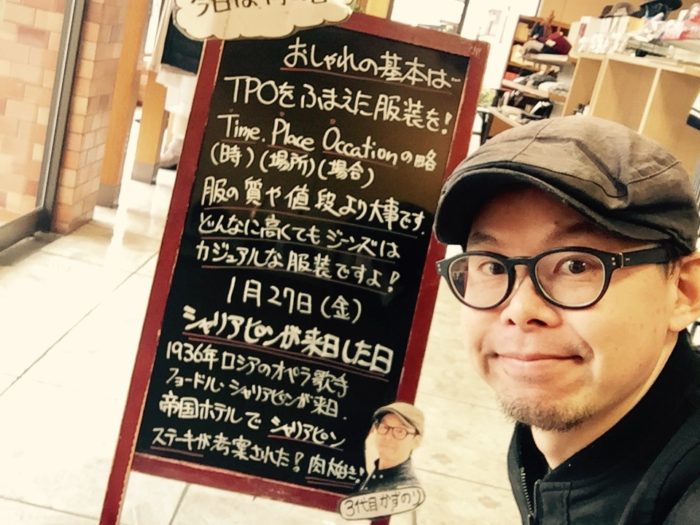 今日は何の日
おしゃれの基本は
TPOをふまえた服装を!
Time. Place Occationの略
(時)(場所)(場合)
服の質や値段より大事です.
どんなに高くてもジーンズは
カジュアルな服装ですよ!
1月27日(金)
シャリアピンが来日した日
1936年ロシアのオペラ歌手
フョードル・シャリアピンが来日.
帝国ホテルでシャリアピン
ステーキが考案された!肉好き!
3代目かずのり